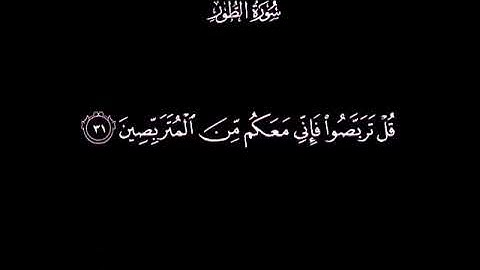 سُورَةُ الطُّورِ
قُلْ تَرَبَّصُوا۟ فَإِنِّي مَعَكُم مِّنَ ٱلْمُتَرَبِّصِينَ ٣١